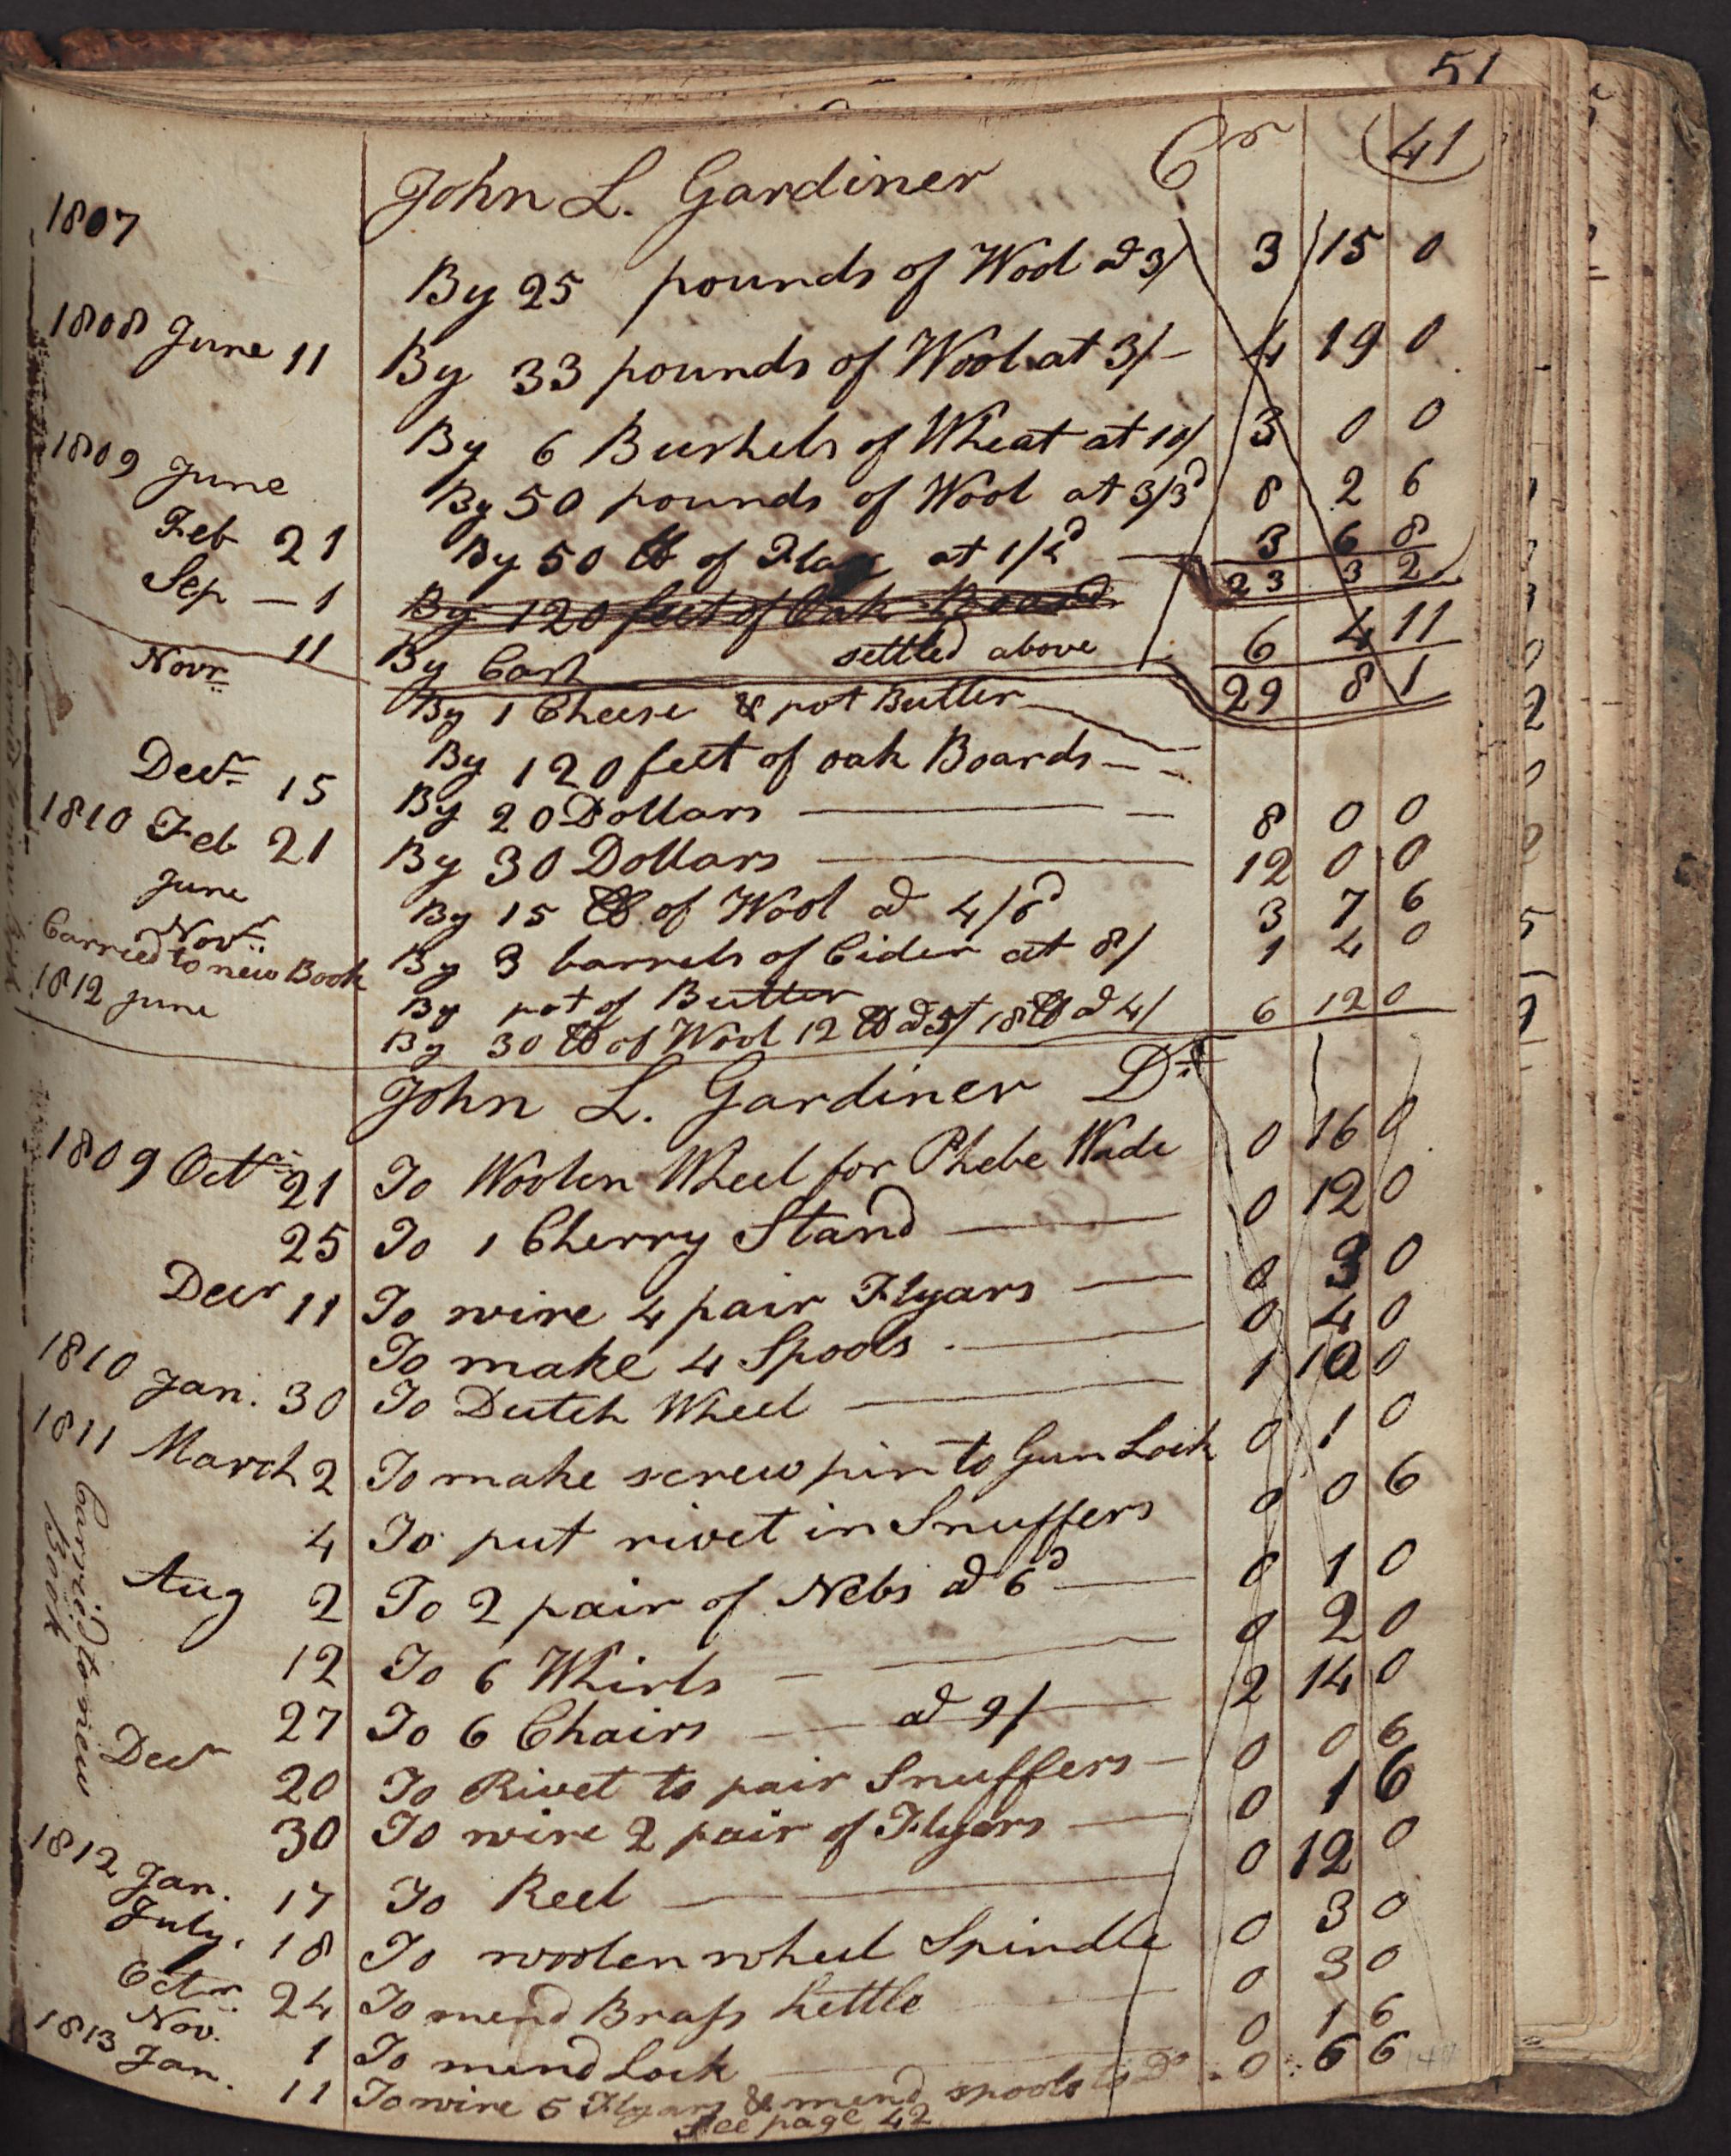 51
41
John L. Gardiner Cr
1807 By 25 pounds of Wool @ 3/ 3 15 0
1808 June 11 By 33 pounds of Wool at 3/– 4 19 0
By 6 Bushels of Wheat at 10/ 3 0 0
1809 June By 50 pounds of Wool at 3/3d 8 2 6
Feb 21 By 50 lb of Flax at 1/4d 3 6 8
23 3 2
Sep – 1 By 120 feet of Oak Board
11 By Cash settled above 6 4 11
29 8 1
Novr By 1 Cheese & pot Butter
By 120 feet of oak Boards
Decr 15 By 20 Dollars 8 0 0
1810 Feb 21 By 30 Dollars 12 0 0
June By 15 lb of Wool @ 4/6d 3 7 6
Novr By 3 barrels of Cider at 8/ 1 4 0
Carried to new Book By pot of Butter
1812 June By 30 lb of Wool 12 lb @ 5/ 18 lb @ 4/ 6 12 0
John L. Gardiner Dr
1809 Octr 21 To Woolen Wheel for Phebe Wade 0 16 0
25 To 1 Cherry Stand 0 12 0
Decr 11 To wire 4 pair Flyars 0 3 0
To make 4 Spools 0 4 0
1810 Jan. 30 To Dutch Wheel 1 10 0
1811 March 2 To make screw pin to Gun Lock 0 1 0
4 To put rivet in Snuffers 0 0 6
Aug 2 To 2 pair of Nebs @ 6d 0 1 0
12 To 6 Whirls 0 2 0
27 To 6 Chairs @ 9/ 2 14 0
Decr 20 To Rivet to pair Snuffers 0 0 6
30 To wire 2 pair of Flyars 0 1 6
1812 Jan. 17 To Reel 0 12 0
July. 18 To woolen wheel Spindle 0 3 0
Octr 24 To mend Brass kettle 0 3 0
Nov. 1 To mend Lock 0 1 6
1813 Jan. 11 To wire 5 Flyars & mend spools to Do 0 6 6
see page 42
Carried to new
Book